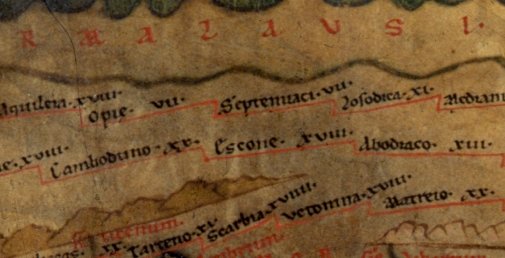 R M A L A V S I.
Aquileia. xviii. Opie. vii. Septemiaci. vii. Losodica. xi. Mediani
ne. xviii. Camboduno. xx. Escone. xviii. Abodiaco. xiii.
xx. Tarteno. xi. Scarbia. xviiii. Vetonina. xviii. Matreio. xx.